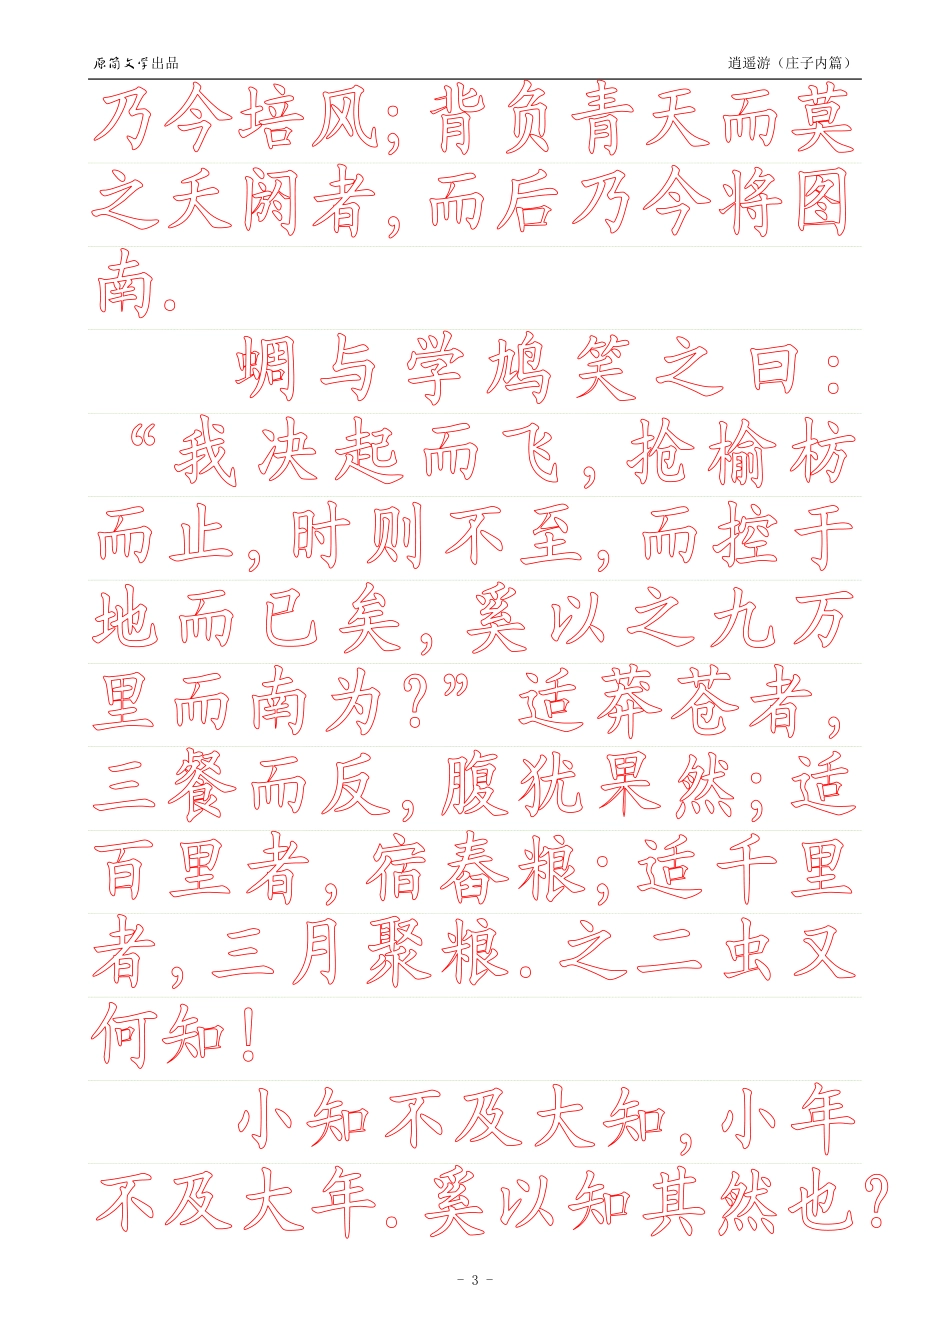 原简文学出品 逍遥游（庄子内篇）
乃今培风;背负青天而莫
之夭阏者,而后乃今将图
南.
蜩与学鸠笑之曰:
“我决起而飞,抢榆枋
而止,时则不至,而控于
地而已矣,奚以之九万
里而南为?” 适莽苍者,
三餐而反,腹犹果然;适
百里者,宿舂粮;适千里
者,三月聚粮.之二虫又
何知!
小知不及大知,小年
不及大年.奚以知其然也?
- 3 -